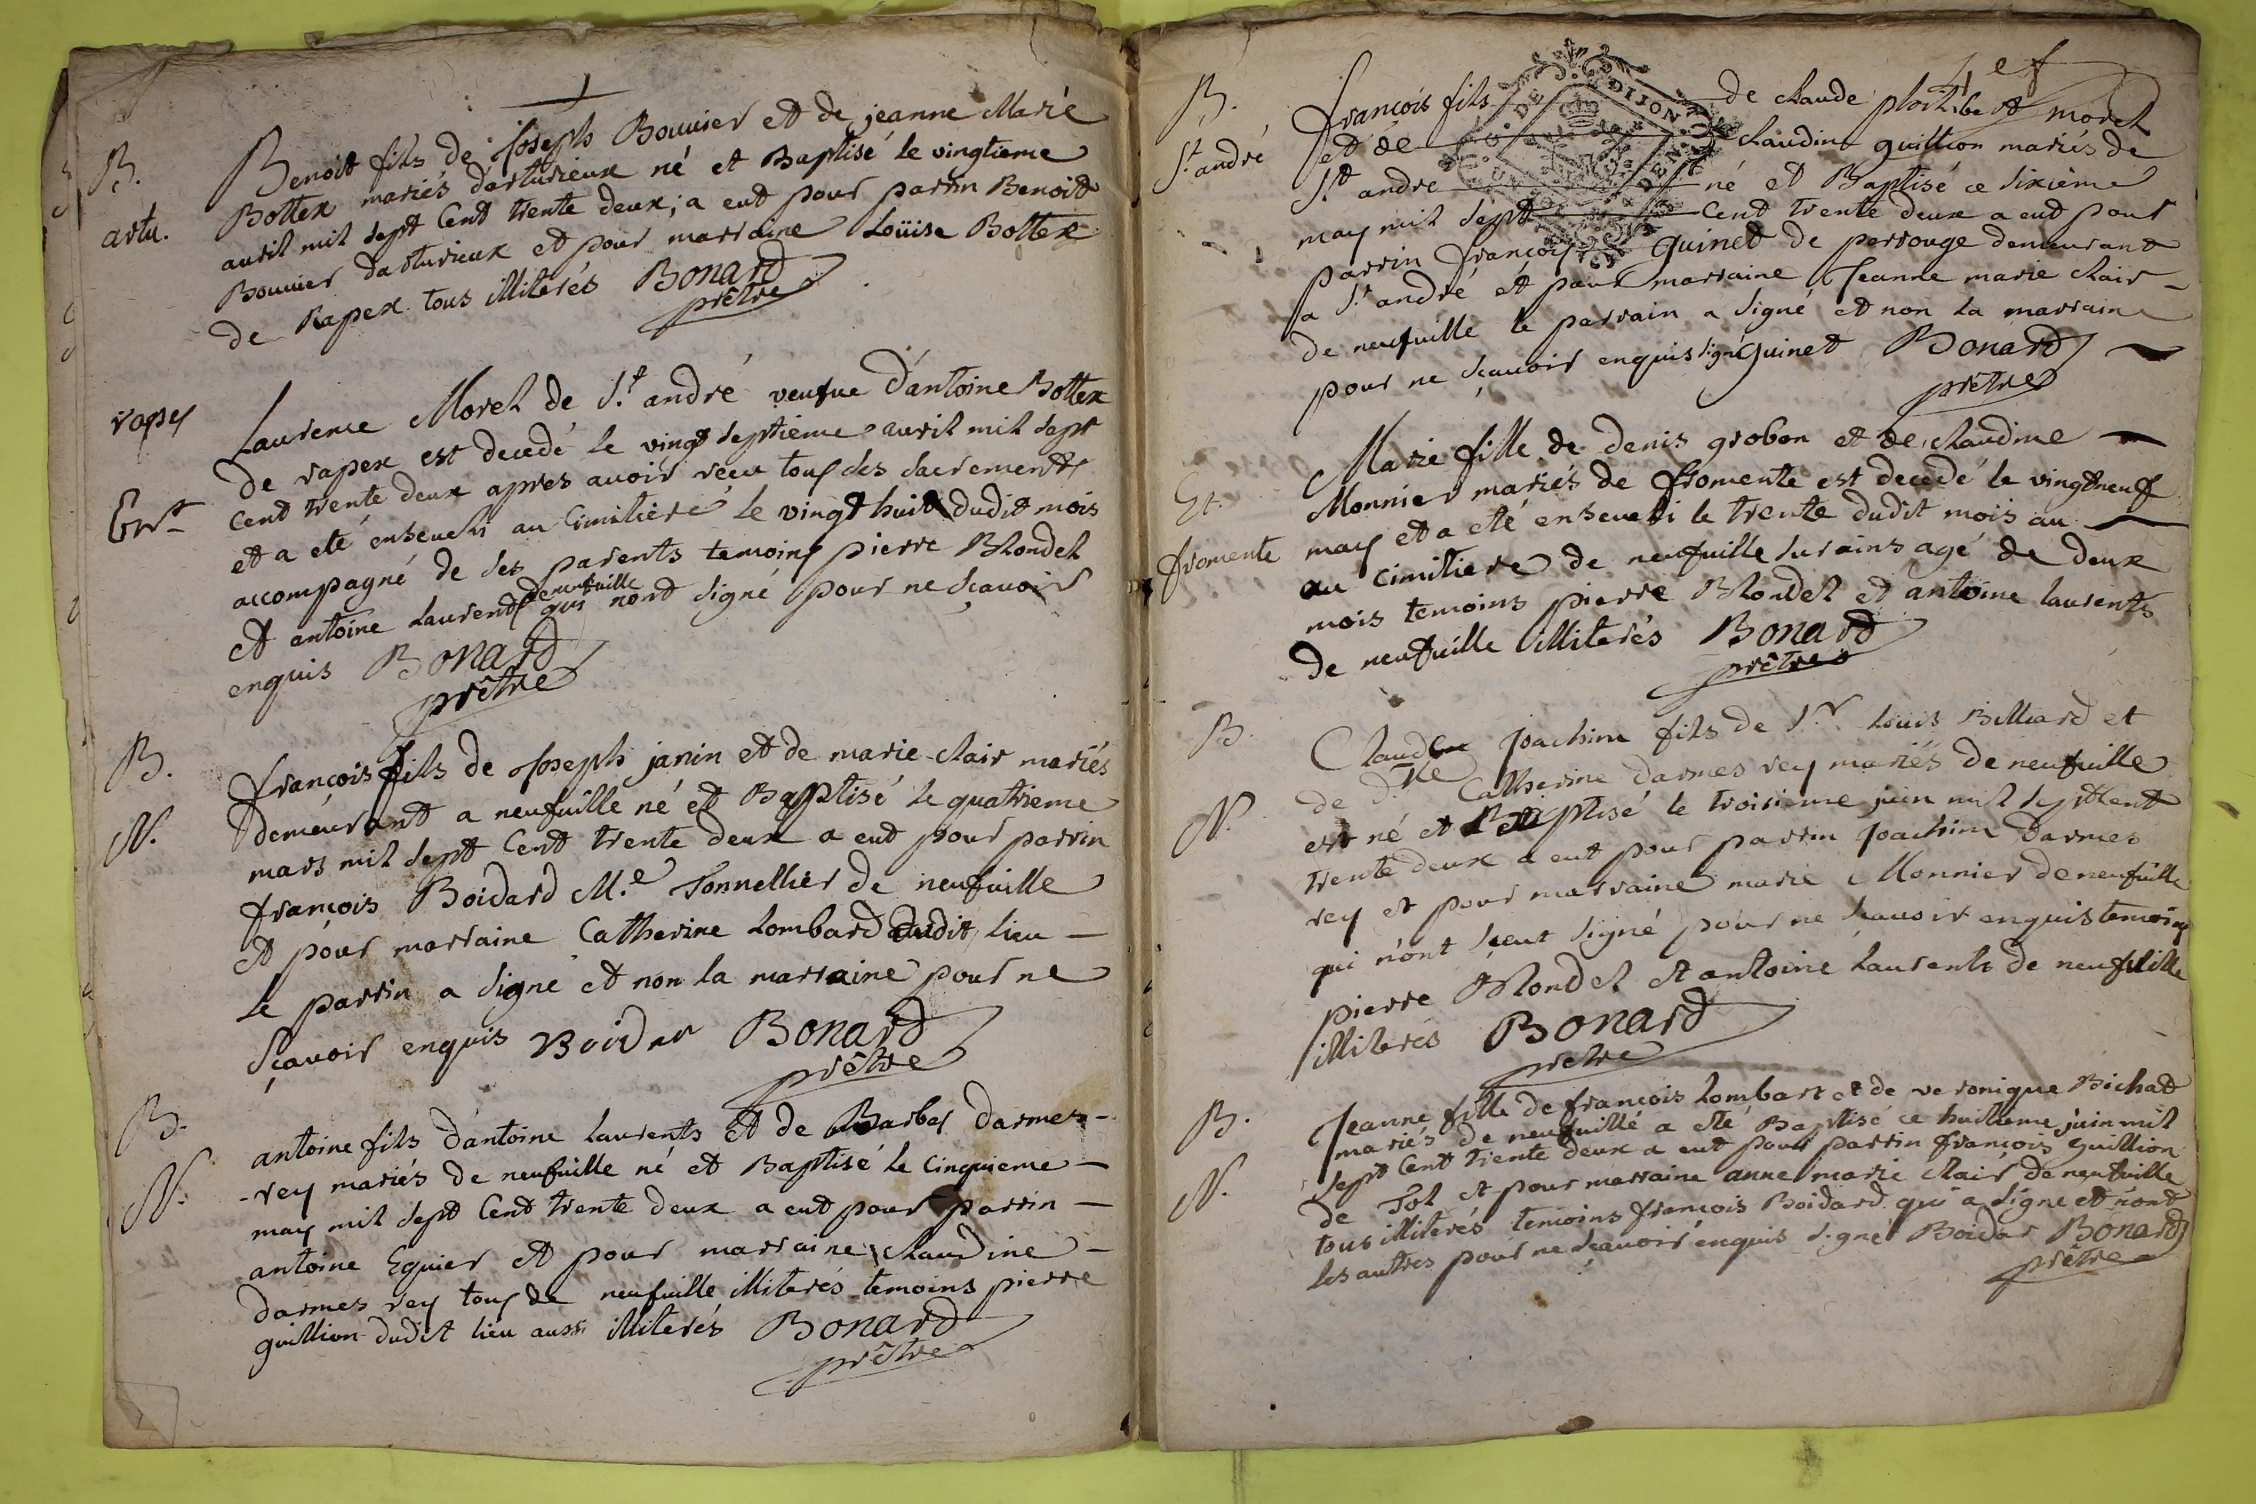 B.
artu.
Benoit fils de Joseph Bouuier et de jeanne Marie
Bottex mariés darturieux né et Baptisé le vingtieme
auril mil sept Cent trente deux, a eut pour parrin Benoit
Bouuier darturieux et pour marraine Loüise Bottex
de Rapex tous illiterés Bonard
prêtre
rapey
Ent
Laurence Morel de St andré veufue d'antoine Bottex
de rapex est decedé le vingt septieme auril mil sept
Cent trente deux apres auoir recu tous ses sacrements
et a eté enseueli au Cimitiere le vingt huit dudit mois
accompagné de ses parents temoins pierre Blondel
et antoine Laurents deneufuille qui nont signé pour ne scauoir
enquis Bonard
prêtre
B.
N.
françois fils de Joseph janin et de marie Clair mariés
demeurant a neufuille né et Baptisé le quatrieme
mars mil sept Cent trente deux a eut pour parrin
françois Boidard M.e Tonnellier de neufuille
et pour marraine Catherine Lombard dudit lieu
Le parrin a signé et non la marraine pour ne
sçauoir enquis Boidar Bonard
prêtre
B.
N.
antoine fils d'antoine Laurents et de Barbe darmes-
-rey mariés de neufuille né et Baptisé le Cinquieme
may mil sept Cent trente deux a eut pour parrin
antoine Eguier et pour marraine Claudine
darmes rey tous de neufuille illiterés temoins pierre
guillion dudit lieu aussi illiterés Bonard
prêtre
4e f
B.
St andré
françois fils de Claude morel
et de Claudine guillion mariés de
St andre né et Baptisé ce sixiéme
may mil sept Cent trente deux a eut pour
parrin françois guinet de perrouge demeurant
a St andré et pour marraine Jeanne marie Clair
de neufuille le parrain a signé et non la marraine
pour ne sçauoir enquis signé guinet Bonard
prêtre
Et.
fromente
Marie fille de denis grobon et de Claudine
Monnier mariés de fromente est decedé le vingt neuf
may et a eté enseueli le trente dudit mois au
au cimitiere de neufuille surains agé de deux
mois temoins pierre Blondel et antoine laurents
de neufuille illiterés Bonard
prêtre
B.
N.
Claude Joachim fils de Sr Louis Billiard et
de dlle Catherine darmes rey mariés de neufuille
est né et Baptisé le troisieme juin mil sept Cent
trente deux a eut pour parrin Joachim darmes
rey et pour marraine marie Monnier deneufuille
qui n'ont sceut signé pour ne sçauoir enquis temoins
pierre Blondel et antoine Laurents de neufuille
illiterés Bonard
prêtre
B.
N.
Jeanne fille de françois Lombart et de veronique Bichat
mariés de neufuille a eté Baptisé ce huitieme juin mil
sept Cent trente deux a eut pour parrin françois guillion
de Tol et pour marraine anne marie Clair de neufuille
tous illiterés temoins françois Boidard qui a signé et nont
les autres pour ne sçauoir enquis signé Boidar Bonard
prêtre
G. DE DIJON